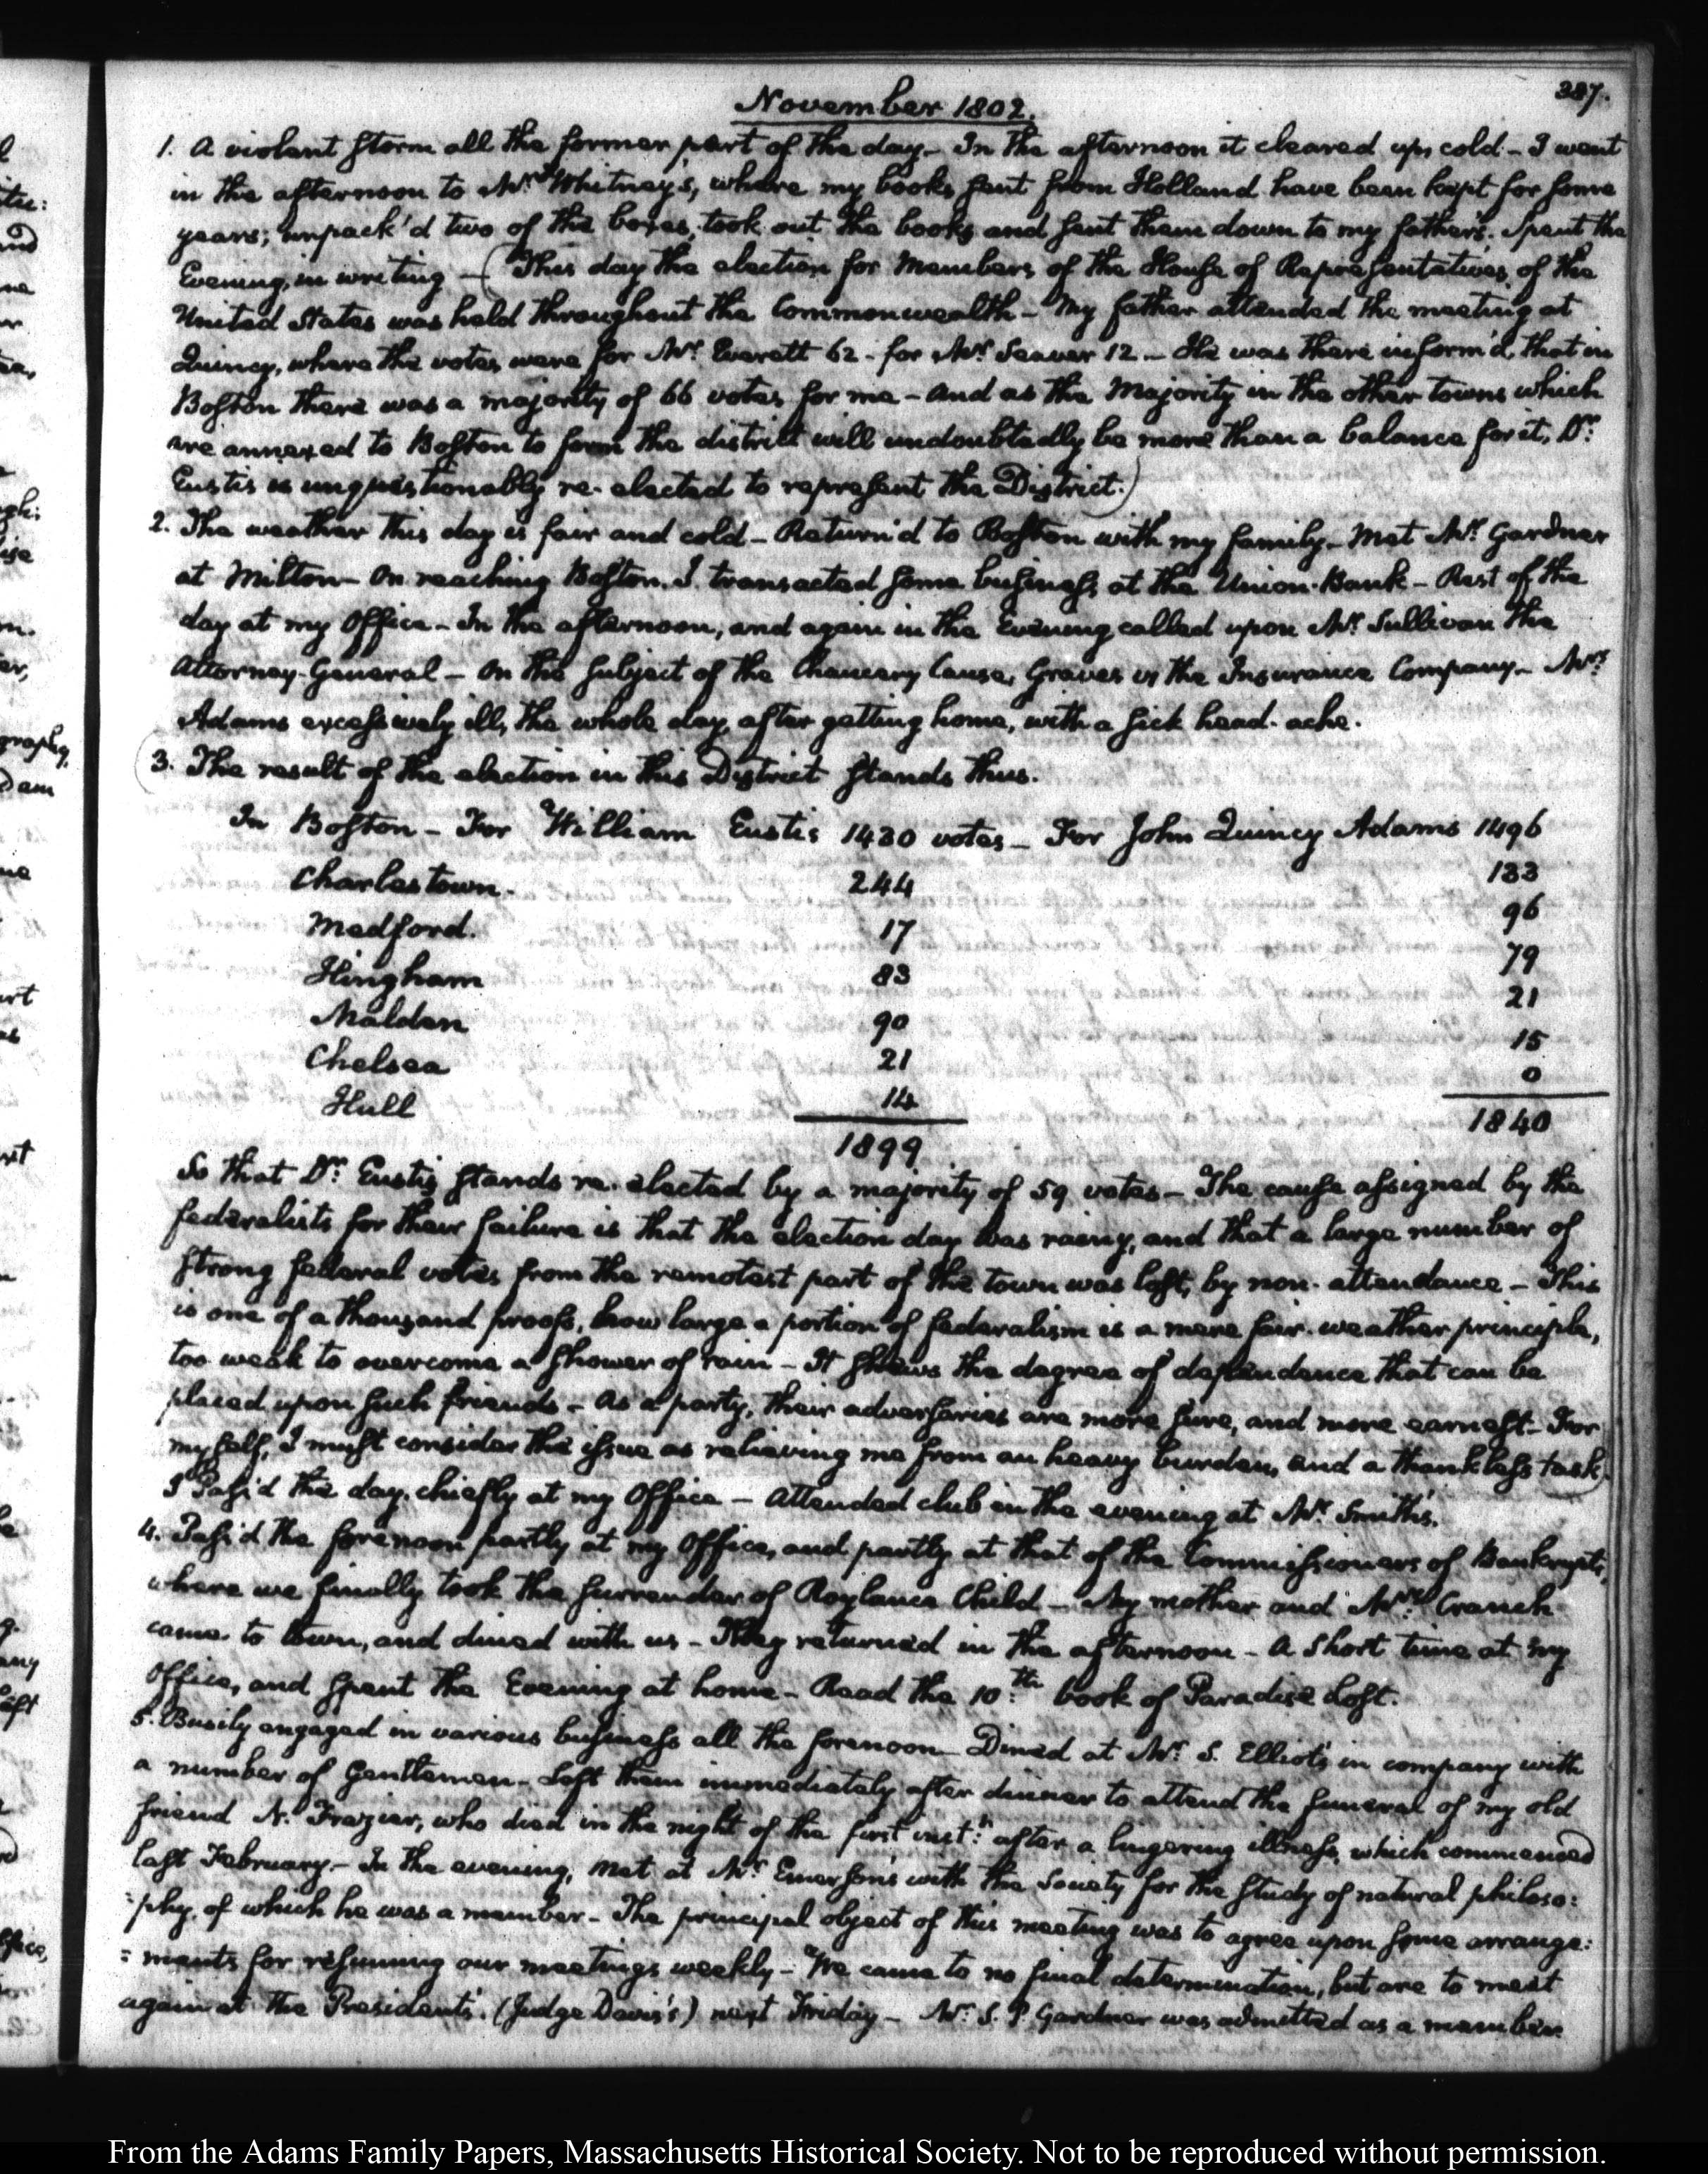 November 1802.
387.
1. A violent storm all the former part of the day – In the afternoon it cleared up, cold – I went
in the afternoon to Mr. Whitney's, where my books sent from Holland have been kept for some
years; unpack'd two of the boxes, took out the books and sent them down to my father's. Spent the
Evening, in writing – (This day the election for Members of the House of Representatives of the
United States was held throughout the Commonwealth – My father attended the meeting at
Quincy, where the votes were for Mr. Everett 62 – for Mr. Seaver 12 – He was there inform'd, that in
Boston there was a majority of 66 votes for me – And as the Majority in the other towns which
are annexed to Boston to form the district will undoubtedly be more than a balance for it, Dr.
Eustis is unquestionably re-elected to represent the District.)
2. The weather this day is fair and cold – Return'd to Boston with my family – Met Mr. Gardner
at Milton – On reaching Boston I transacted some business at the Union-Bank – Rest of the
day at my Office – In the afternoon, and again in the Evening called upon Mr. Sullivan the
Attorney-General – On the subject of the Chancery Cause, Graves vs the Insurance Company – Mrs.
Adams excessively ill, the whole day, after getting home, with a sick head-ache.
(3. The result of the election in this District stands thus.
In Boston – For William Eustis 1430 votes – For John Quincy Adams 1496
Charlestown. 244 133
Medford. 17 96
Hingham 83 79
Malden 90 21
Chelsea 21 15
Hull 14 0
1899 1840
So that Dr. Eustis stands re-elected by a majority of 59 votes – The cause assigned by the
federalists for their failure is that the election day was rainy, and that a large number of
strong federal votes from the remotest part of the town was lost, by non-attendance – This
is one of a thousand proofs, how large a portion of federalism is a mere fair-weather principle,
too weak to overcome a shower of rain – It shews the degree of dependance that can be
placed upon such friends – As a party, their adversaries are more sure, and more earnest – For
myself, I must consider the issue as relieving me from an heavy burden, and a thankless task)
I Pass'd the day chiefly at my Office – Attended club in the evening at Mr. Smith's.
4. Pass'd the forenoon partly at my Office, and partly at that of the Commissioners of Bankrupts,
where we finally took the surrender of Roylance Child – My mother and Mrs. Cranch
came to town, and dined with us – They returned in the afternoon – A short time at my
Office, and spent the Evening at home – Read the 10th. book of Paradise Lost.
5. Busily engaged in various business all the forenoon – Dined at Mr. S. Elliot's in company with
a number of Gentlemen – Left them immediately after dinner to attend the funeral of my old
friend N. Frazier, who died in the night of the first inst: after a lingering illness, which commenced
last February – In the evening, met at Mr. Emerson's with the Society for the study of natural philoso:
:phy, of which he was a member – The principal object of this meeting was to agree upon some arrange:
:ments for resuming our meetings weekly – We came to no final determination, but are to meet
again at the President's. (Judge Davis's) next Friday – Mr. S. P. Gardner was admitted as a member
From the Adams Family Papers, Massachusetts Historical Society. Not to be reproduced without permission.